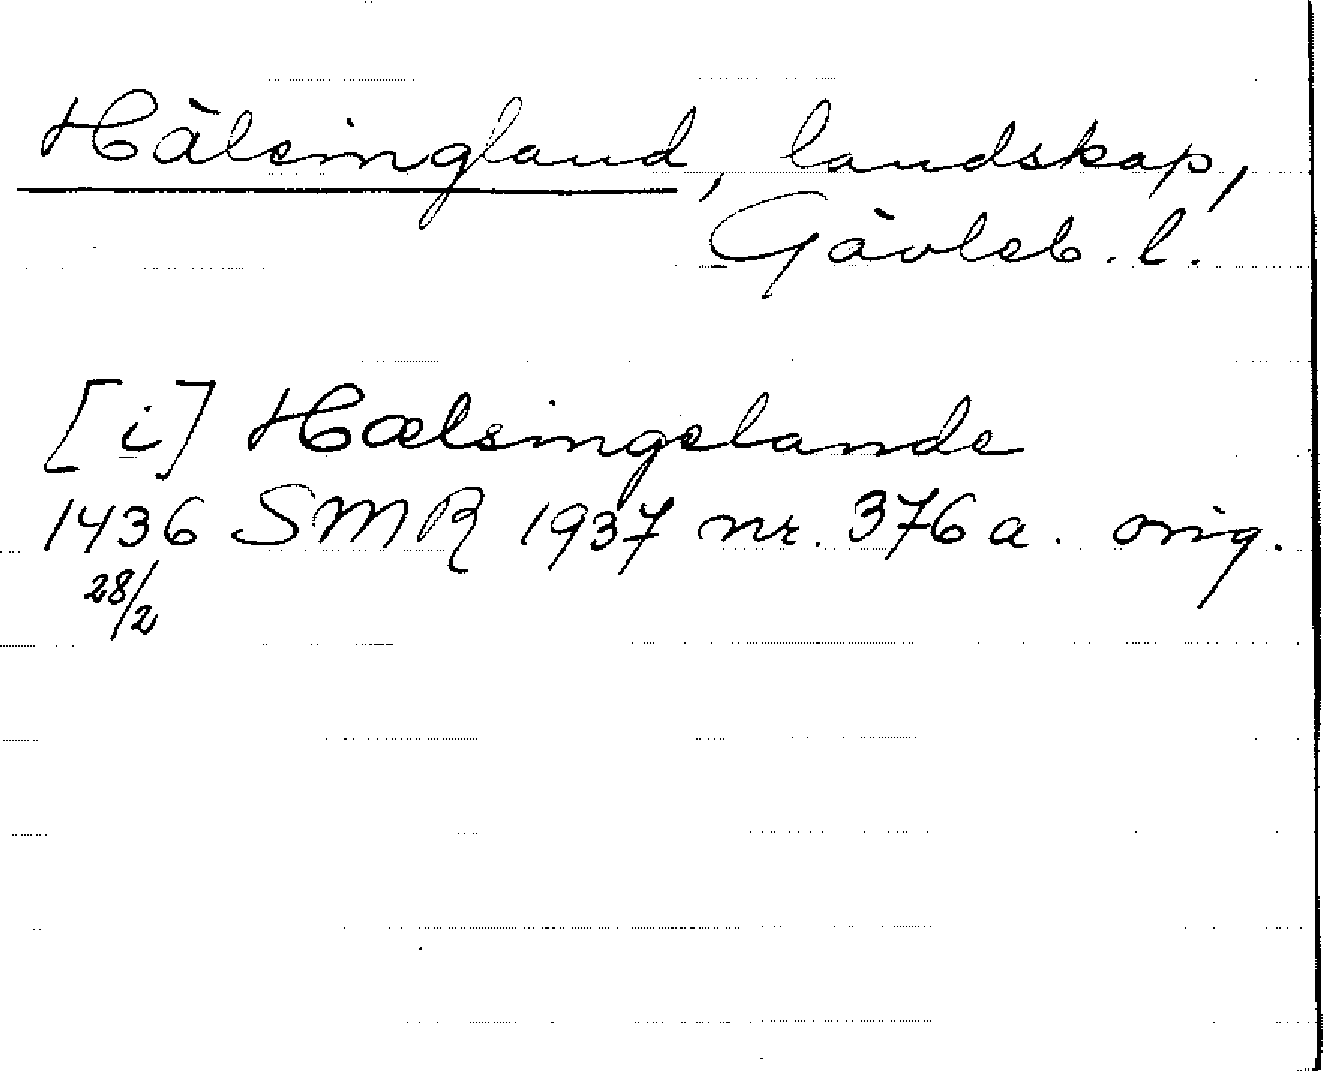 Hälsingland, landskap,
Gävleb. l.
[i] Hælsingelande
1436 SMR 1937 nr. 376a. orig.
28/2